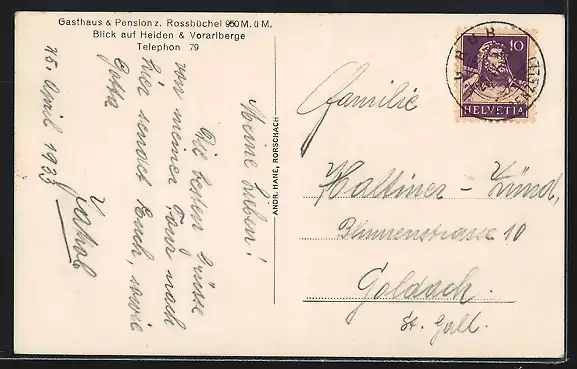 Gasthaus & Pension z. Rossbüchel 950 M. ü M.
Blick auf Heiden & Vorarlberge
Telephon 79
15. April 1933
Meine Lieben!
Die besten Grüsse
von meiner Tour nach
hier sendet Euch, sowie
Gotta
ANDR. HANE, RORSCHACH
GRUB
10
HELVETIA
Familie
Haltiner - Zünd,
Blumenstrasse 10
Goldach.
St. Gall.